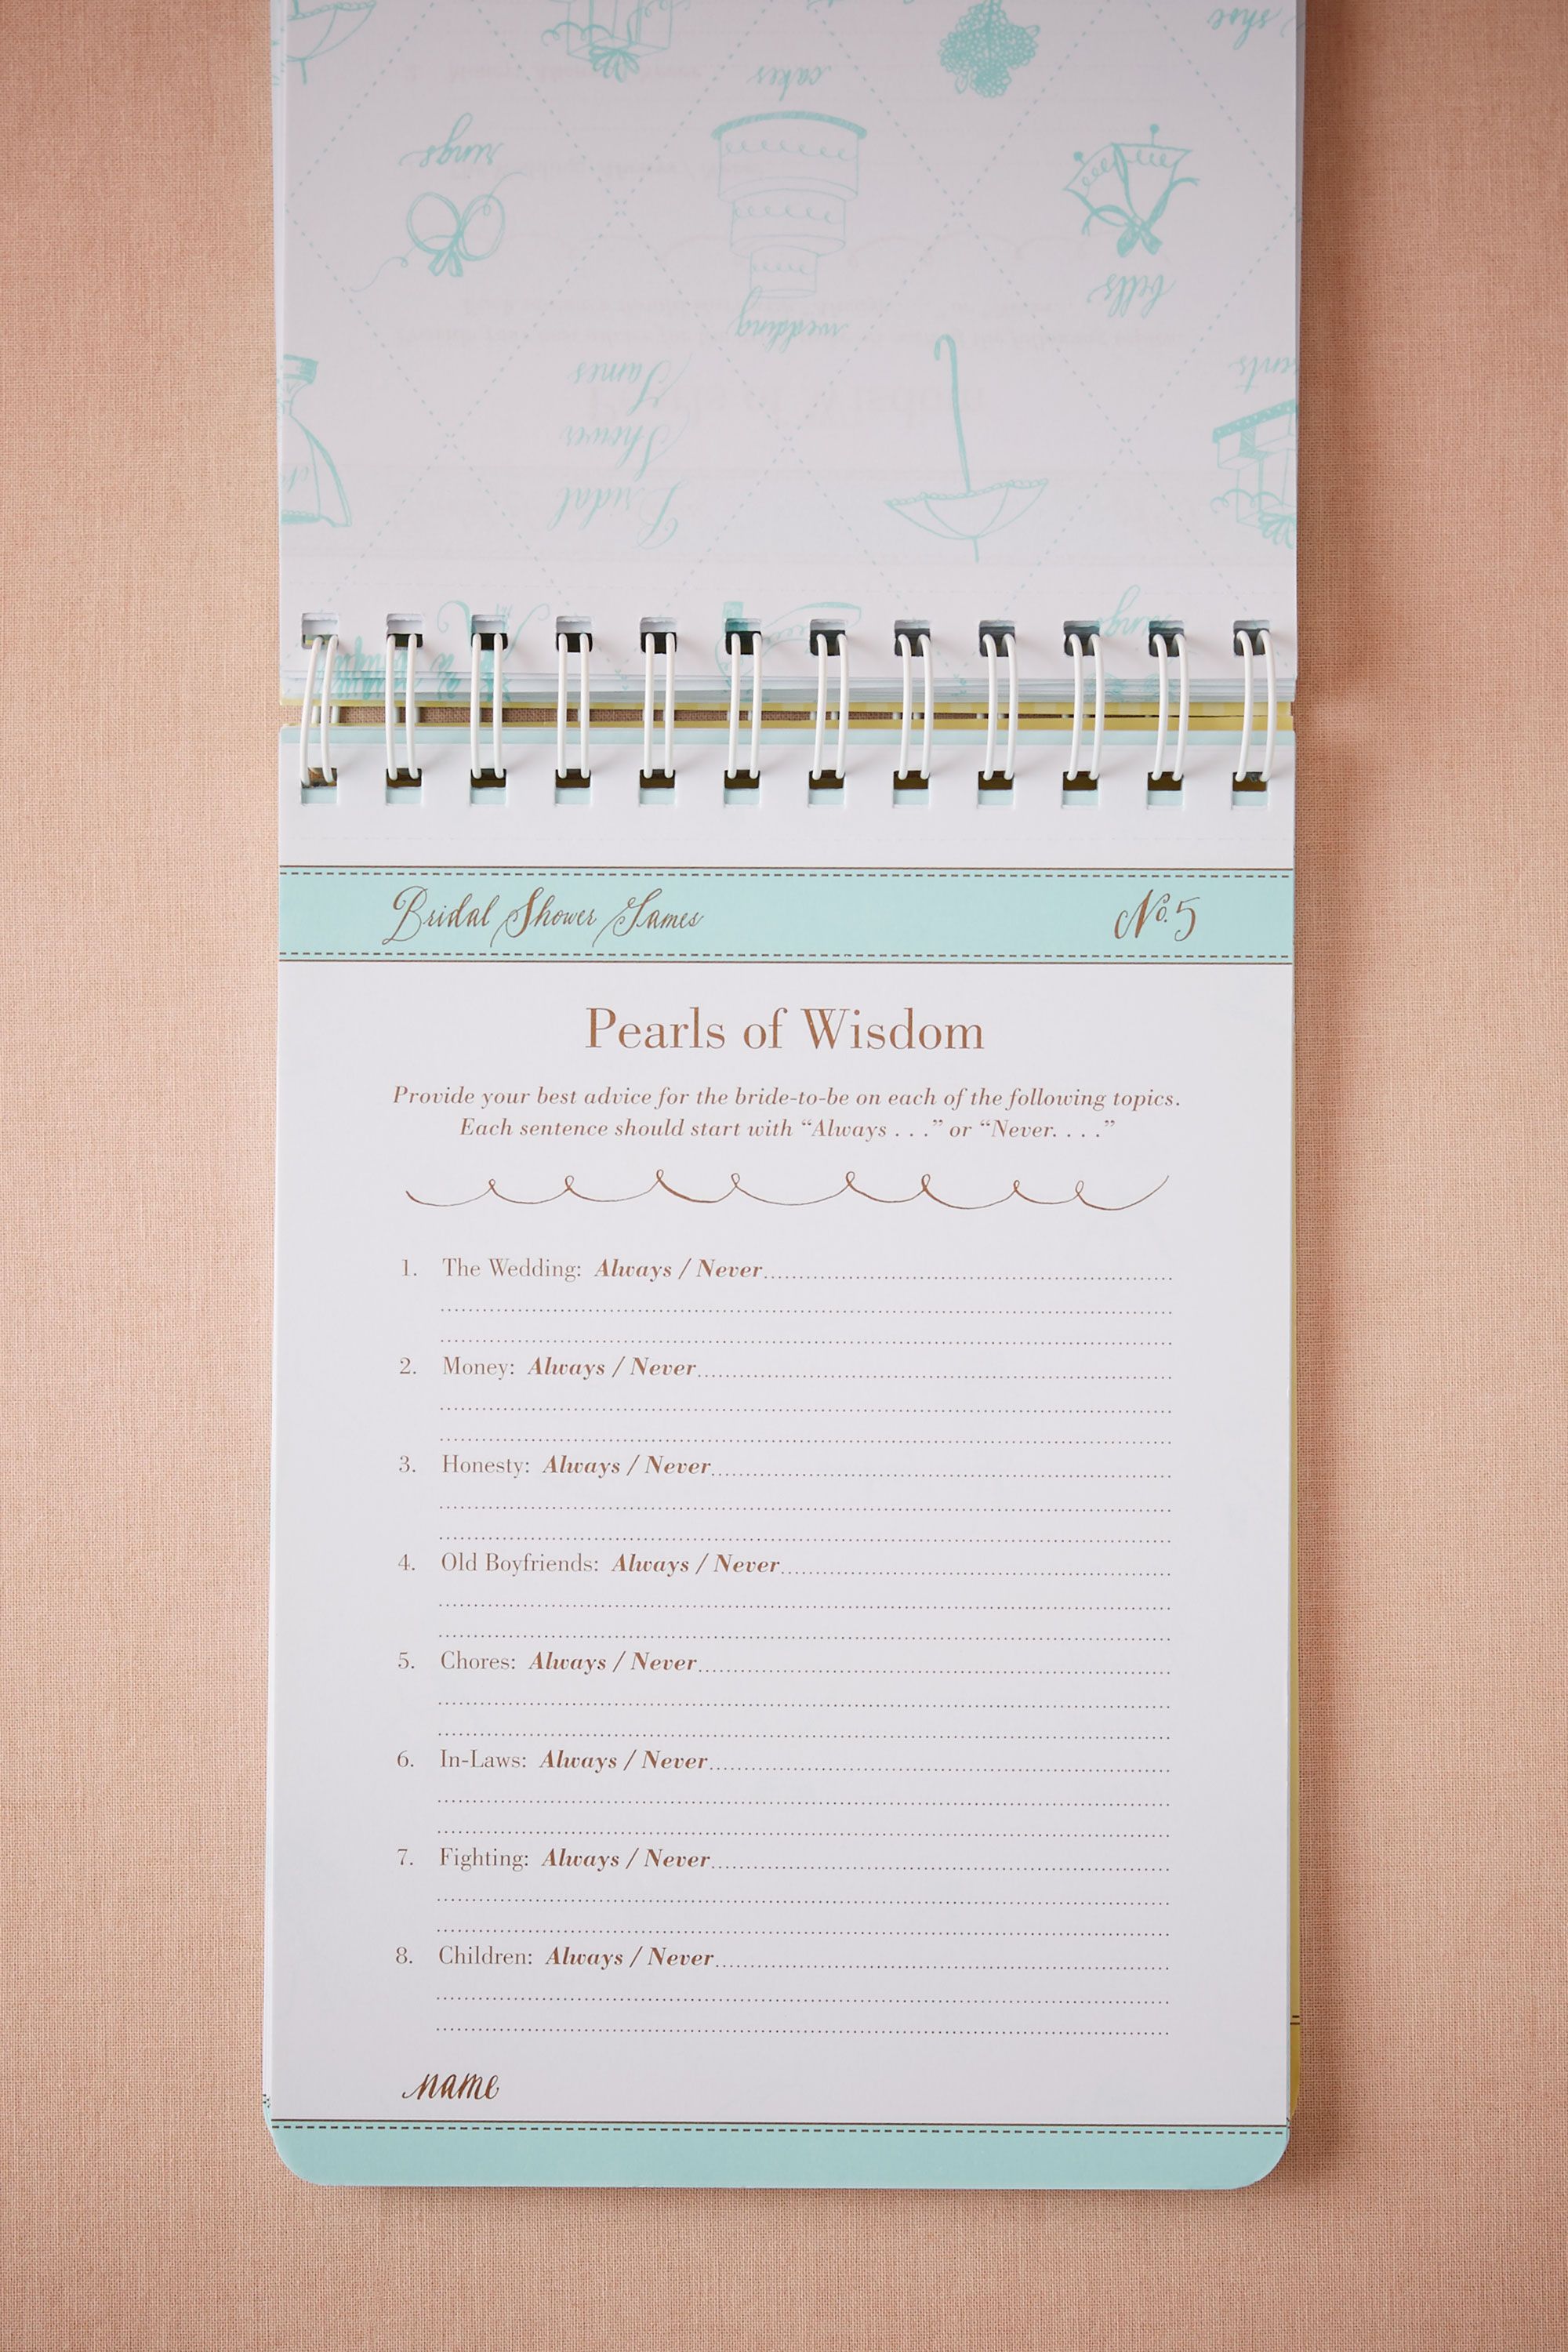 shoe
cakes
rings
bells
wedding
Games
Shower
Bridal
rings
Bridal Shower Games No. 5
Pearls of Wisdom
Provide your best advice for the bride-to-be on each of the following topics.
Each sentence should start with “Always . . .” or “Never. . . .”
1. The Wedding: Always / Never
2. Money: Always / Never
3. Honesty: Always / Never
4. Old Boyfriends: Always / Never
5. Chores: Always / Never
6. In-Laws: Always / Never
7. Fighting: Always / Never
8. Children: Always / Never
name